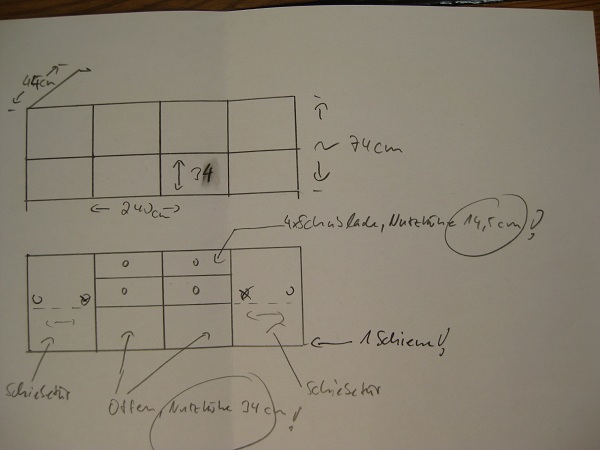 45cm
~ 74cm
34
240cm
4xSchublade, Nutzhöhe 14,5cm!
1 Schiene!
Schiebetür
Offen, Nutzhöhe 34cm!
Schiebetür